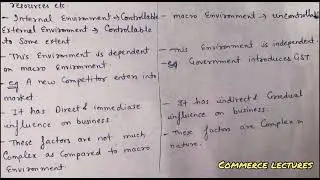 resources etc
- Internal Environment → Controllable
External Environment → Controllable
to Some extent
- This Environment is dependent
on macro Environment.
- eg A new Competitor enters into
market
- It has Direct & immediate
influence on business.
- These factors are not much
Complex as Compared to macro
Environment
- macro Environment → uncontrollable
- This Environment is independent.
- eg Government introduces GST
- It has indirect & Gradual
influence on business.
- These factors are Complex in
nature.
Commerce lectures